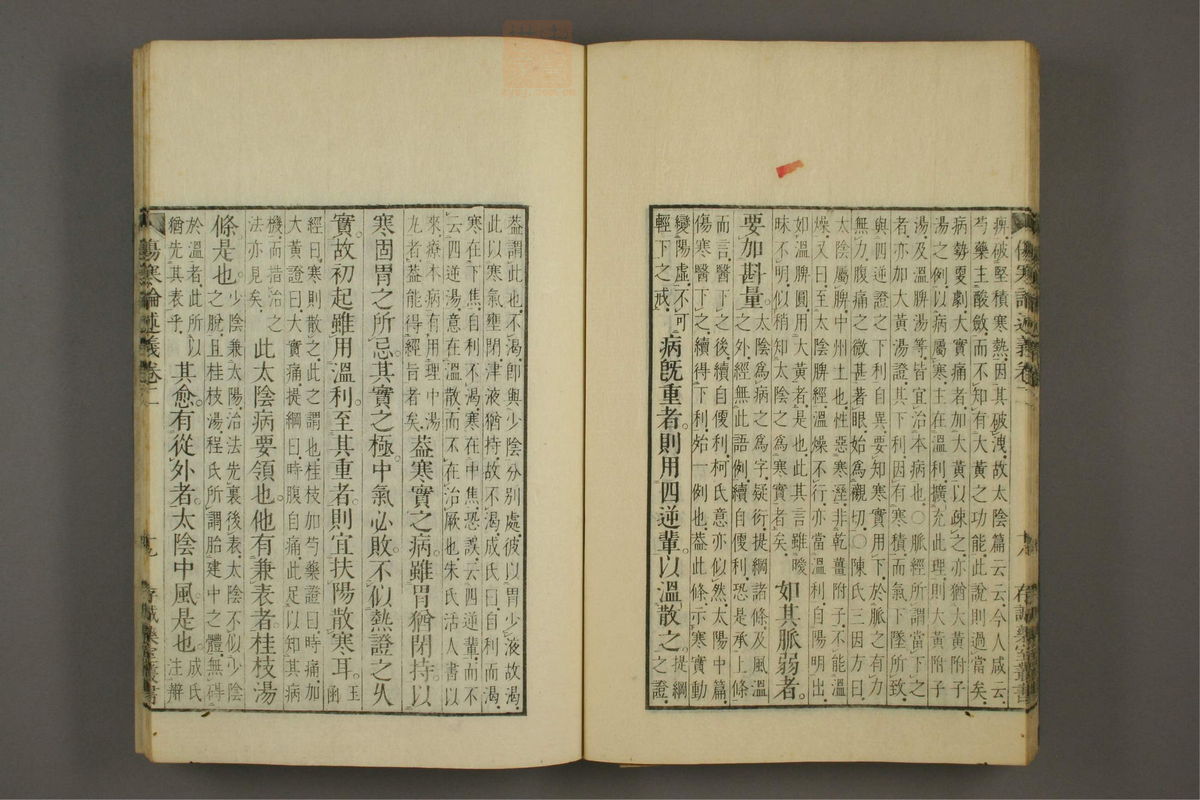 痺破堅積寒熱因其破洩故太陰篇云云今人咸云
芍藥主酸斂而不知有大黃之功能此說則過當矣
病勢耎劇大實痛者加大黃以疎之亦猶大黃附子
湯之例以病屬寒主在溫利擴充此理則大黃附子
湯及溫脾湯等皆宜治本病也○脈經所謂當下之
者亦加大黃湯證其下利因有寒積而氣下墜所致
與四逆證之下利自異要知寒實用下於脈之有力
無力腹痛之微甚著眼始為親切○陳氏三因方曰
太陰屬脾中州土也性惡寒溼非乾薑附子不能溫
燥又曰至太陰脾經溫燥不行亦當溫利自陽明出
如溫脾圓用大黃者是也此其言雖曖
昧不明似稍知太陰之為寒實者矣
如其脈弱者。
要加斟量。
太陰為病之為字疑衍提綱諸條及風溫
之外經無此語例續自便利恐是承上條
而言醫下之後續自便利柯氏意亦似然太陽中篇
傷寒醫下之續得下利始一例也蓋此條示寒實動
變陽虛不可
輕下之戒
病旣重者。則用四逆輩以溫散之。
提綱
之證
傷寒論述義卷一
十八
存誠藥室叢書
蓋謂此也不渴即與少陰分別處彼以胃少液故渴
此以寒氣壅閉津液猶持故不渴成氏曰自利而渴
寒在下焦自利不渴寒在中焦恐誤云四逆輩而不
云四逆湯意在溫散而不在治厥也朱氏活人書以
來療本病有用理中湯
丸者蓋能得經旨者矣
蓋寒實之病。雖胃猶閉持。以
寒固胃之所忌。其實之極。中氣必敗。不似熱證之久
實。故初起雖用溫利。至其重者。則宜扶陽散寒耳。
玉
函
經曰寒則散之此之謂也桂枝加芍藥證曰時痛加
大黃證曰大實痛提綱曰時腹自痛此足以知其病
機而措治之
法亦見矣
此太陰病要領也。他有兼表者。桂枝湯
條是也。
少陰兼太陽治法先裏後表太陰不似少陰
之脫且桂枝湯程氏所謂胎建中之體無礙
於溫者此所以
猶先其表乎
其愈有從外者。太陰中風。是也。
成氏
注辯
傷寒論述義卷一
十九
存誠藥室叢書